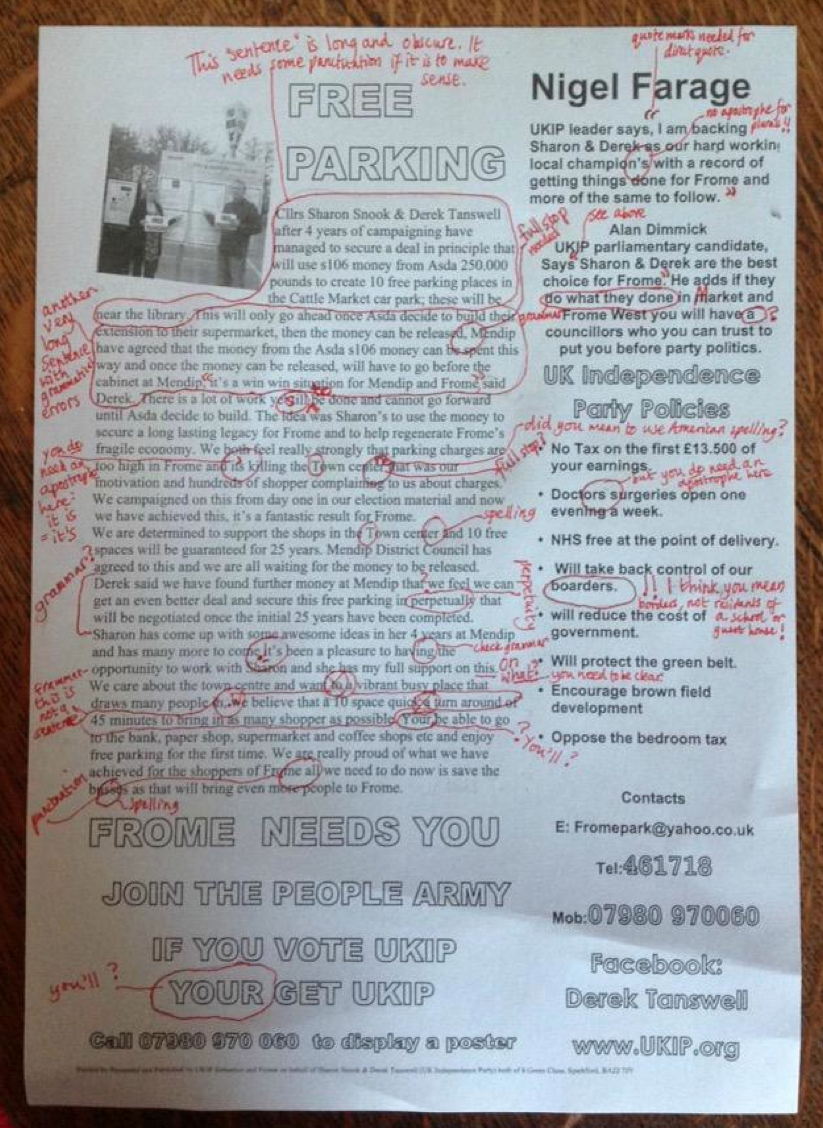 This "sentence" is long and obscure. It
needs some punctuation if it is to make
sense.
FREE
PARKING
Cllrs Sharon Snook & Derek Tanswell
after 4 years of campaigning have
managed to secure a deal in principle that
will use s106 money from Asda 250,000
pounds to create 10 free parking places in
the Cattle Market car park; these will be
full stop
needed
near the library. This will only go ahead once Asda decide to build their
extension to their supermarket, then the money can be released, Mendip
have agreed that the money from the Asda s106 money can be spent this
way and once the money can be released, will have to go before the
cabinet at Mendip, it's a win win situation for Mendip and Frome said
another
very
long
sentence
with
grammatical
errors
Derek. There is a lot of work
be done and cannot go forward
until Asda decide to build. The idea was Sharon's to use the money to
secure a long lasting legacy for Frome and to help regenerate Frome's
fragile economy. We both feel really strongly that parking charges are
too high in Frome and is killing the Town center that was our
full stop!
you do
need an
apostrophe
here:
it is
= it's
motivation and hundreds of shopper complaining to us about charges.
We campaigned on this from day one in our election material and now
we have achieved this, it's a fantastic result for Frome.
We are determined to support the shops in the Town center and 10 free
spelling
spaces will be guaranteed for 25 years. Mendip District Council has
agreed to this and we are all waiting for the money to be released.
grammar?
Derek said we have found further money at Mendip that we feel we can
get an even better deal and secure this free parking in perpetually that
perpetuity
will be negotiated once the initial 25 years have been completed.
Sharon has come up with some awesome ideas in her 4 years at Mendip
and has many more to come it's been a pleasure to having the
check grammar
opportunity to work with Sharon and she has my full support on this.
on
what? you need to be clear
We care about the town centre and want to a vibrant busy place that
this is
not a
sentence
draws many people in, we believe that a 10 space quick turn around of
45 minutes to bring in as many shopper as possible. Your be able to go
? You'll?
to the bank, paper shop, supermarket and coffee shops etc and enjoy
free parking for the first time. We are really proud of what we have
achieved for the shoppers of Frome all we need to do now is save the
punctuation
busses as that will bring even more people to Frome.
spelling
FROME NEEDS YOU
JOIN THE PEOPLE ARMY
IF YOU VOTE UKIP
you'll?
YOUR GET UKIP
Call 07980 970 060 to display a poster
quote marks needed for
direct quote.
Nigel Farage
no apostrophe for
plurals!!
UKIP leader says, I am backing
Sharon & Derek as our hard working
local champion's with a record of
getting things done for Frome and
more of the same to follow. "
see above
Alan Dimmick
UKIP parliamentary candidate,
Says Sharon & Derek are the best
choice for Frome. He adds if they
do what they done in Market and
grammar
Frome West you will have a
?
councillors who you can trust to
put you before party politics.
UK Independence
Party Policies
did you mean to use American spelling?
• No Tax on the first £13.500 of
your earnings.
but you do need an
apostrophe here
• Doctors surgeries open one
evening a week.
• NHS free at the point of delivery.
• Will take back control of our
boarders.
!! I think you mean
borders, not residents of
a school or
guest house!
• will reduce the cost of
government.
• Will protect the green belt.
• Encourage brown field
development
• Oppose the bedroom tax
Contacts
E: Fromepark@yahoo.co.uk
Tel:461718
Mob:07980 970060
Facebook:
Derek Tanswell
www.UKIP.org